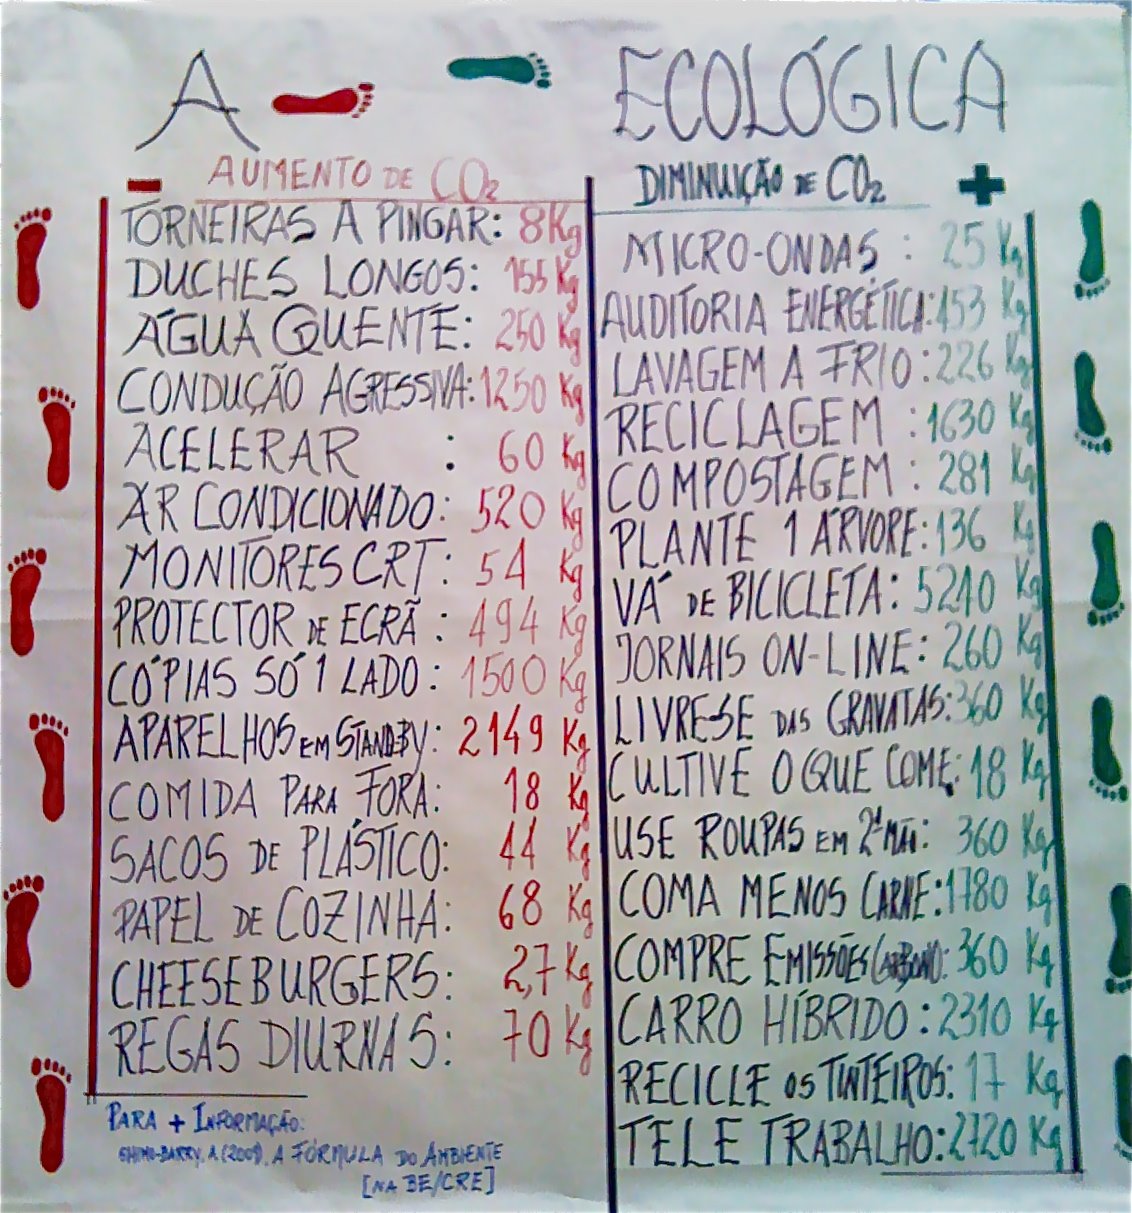 A ECOLÓGICA
- AUMENTO DE CO2
TORNEIRAS A PINGAR: 8 Kg
DUCHES LONGOS: 155 Kg
ÁGUA QUENTE: 250 Kg
CONDUÇÃO AGRESSIVA: 1250 Kg
ACELERAR : 60 Kg
AR CONDICIONADO: 520 Kg
MONITORES CRT: 54 Kg
PROTECTOR DE ECRÃ : 494 Kg
CÓPIAS SÓ 1 LADO: 1500 Kg
APARELHOS EM STAND-BY: 2149 Kg
COMIDA PARA FORA: 18 Kg
SACOS DE PLÁSTICO: 44 Kg
PAPEL DE COZINHA: 68 Kg
CHEESEBURGERS: 2,7 Kg
REGAS DIURNAS: 70 Kg
PARA + INFORMAÇÃO:
SHIMO-BARRY, A. (2009). A FÓRMULA DO AMBIENTE
[NA BE/CRE]
DIMINUIÇÃO DE CO2 +
MICRO-ONDAS : 25 Kg
AUDITORIA ENERGÉTICA: 153 Kg
LAVAGEM A FRIO: 226 Kg
RECICLAGEM : 1630 Kg
COMPOSTAGEM : 281 Kg
PLANTE 1 ÁRVORE: 136 Kg
VÁ DE BICICLETA: 5210 Kg
JORNAIS ON-LINE: 260 Kg
LIVRE-SE DAS GRAVATAS: 360 Kg
CULTIVE O QUE COME: 18 Kg
USE ROUPAS EM 2ª MÃO: 360 Kg
COMA MENOS CARNE: 1780 Kg
COMPRE EMISSÕES CARBONO: 360 Kg
CARRO HÍBRIDO: 2310 Kg
RECICLE OS TINTEIROS: 17 Kg
TELE TRABALHO: 2720 Kg